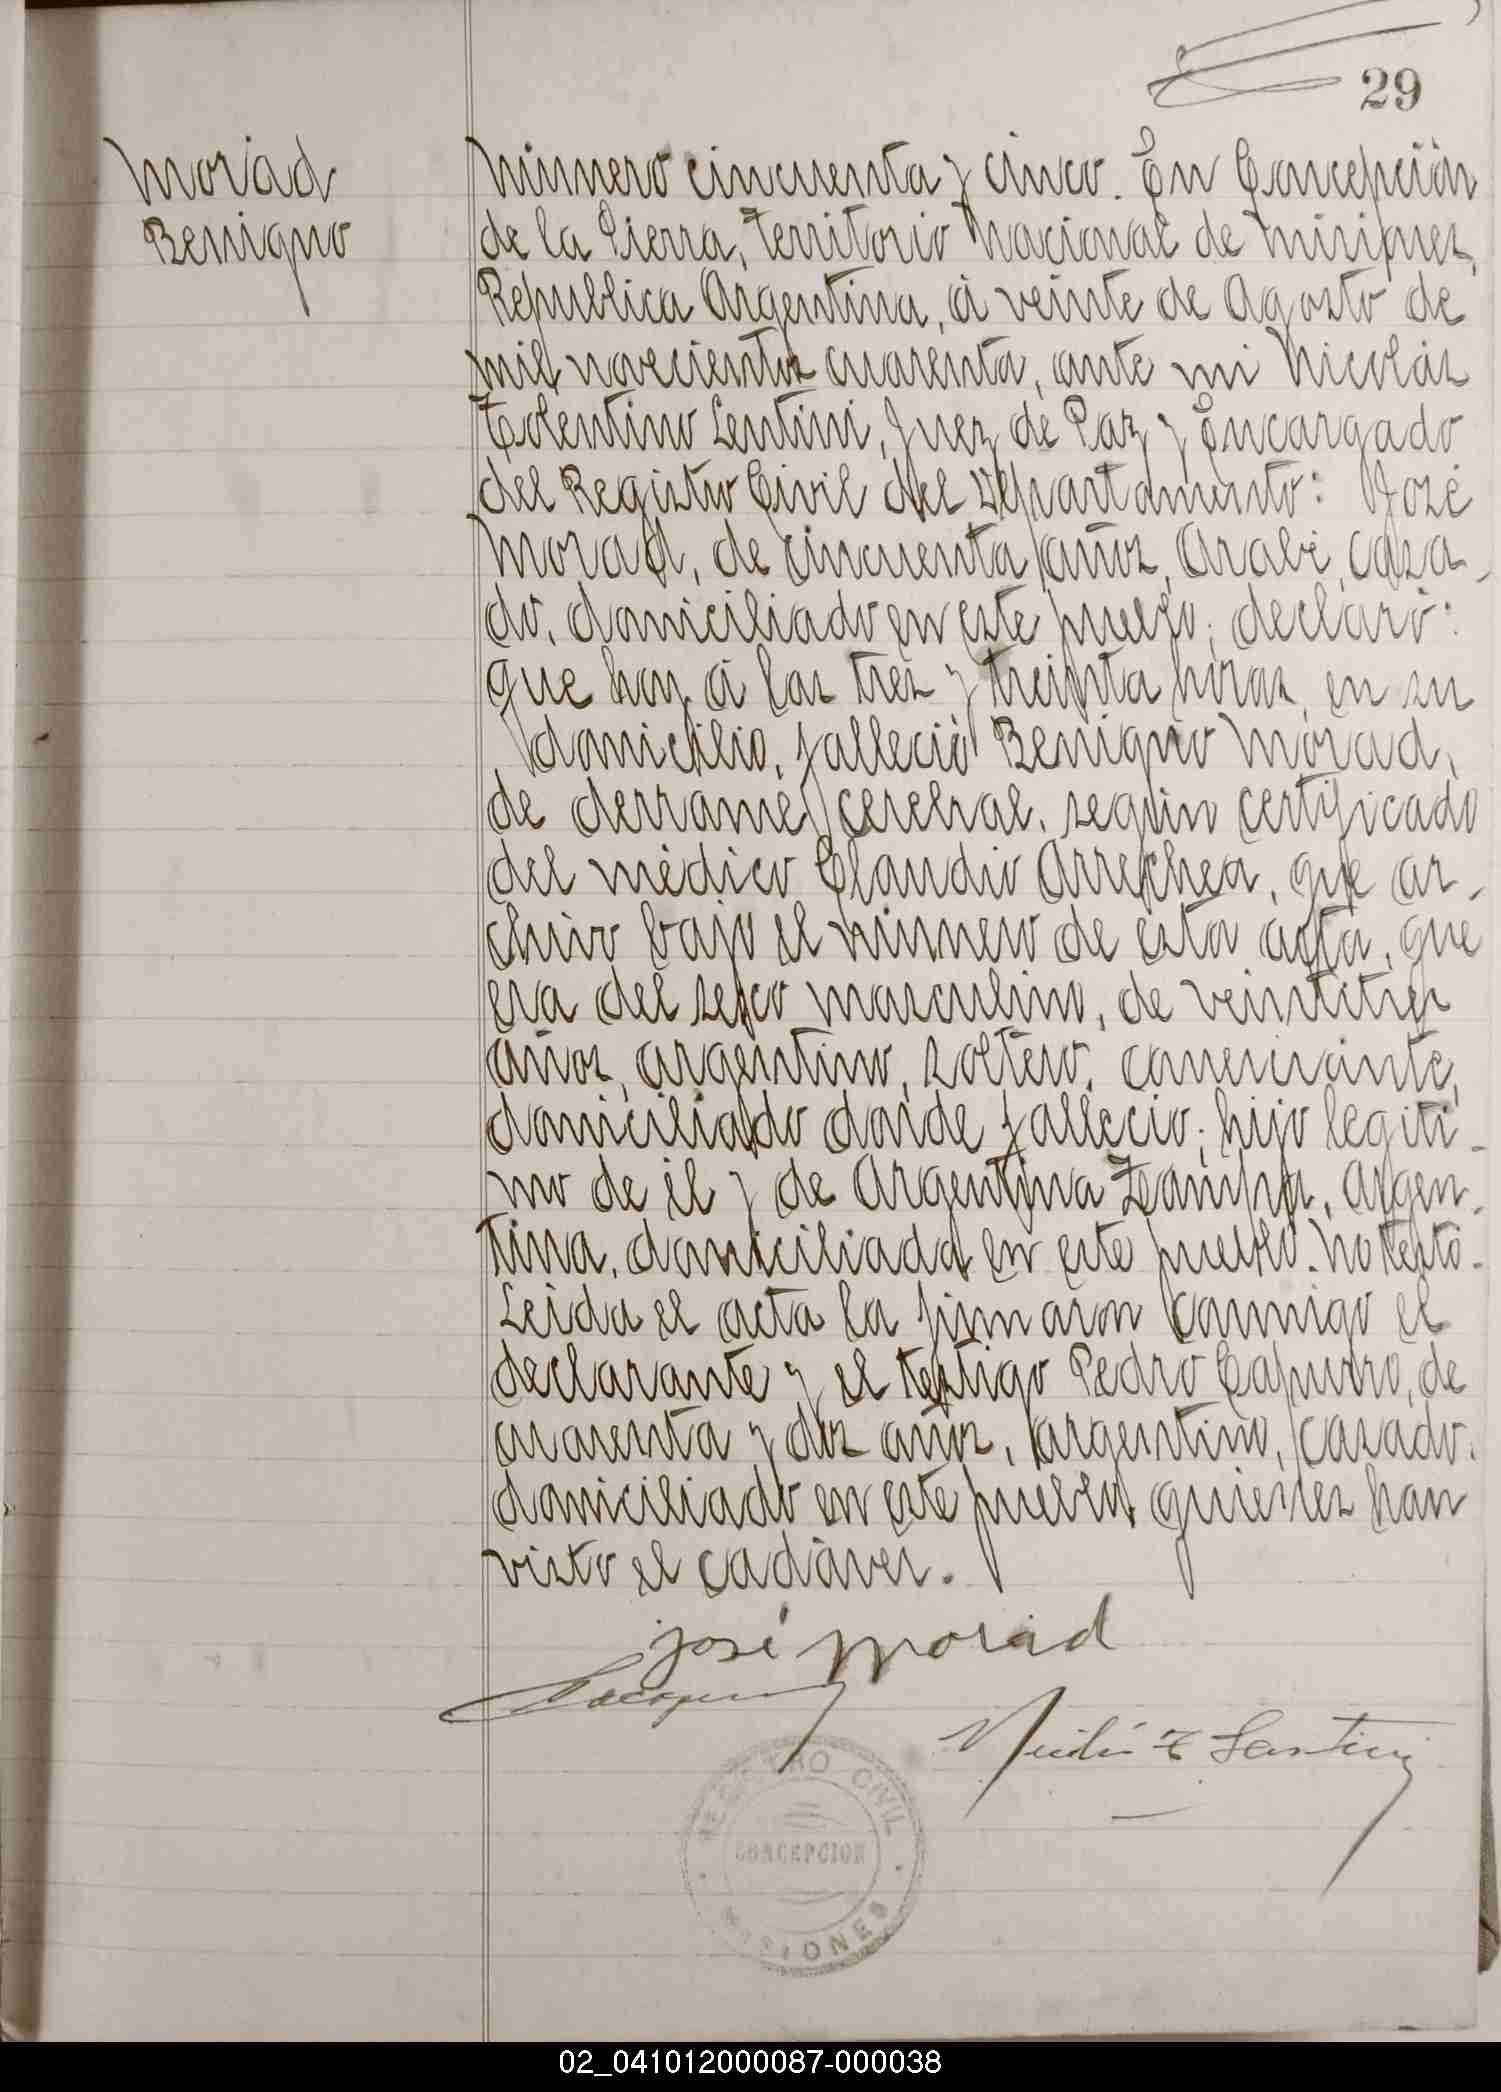 29
Morad
Benigno
Número cincuenta y cinco. En Concepción
de la Sierra, Territorio Nacional de Misiones,
República Argentina, á veinte de Agosto de
mil novecientos cuarenta, ante mi Nicolás
Tolentino Lentini, Juez de Paz y Encargado
del Registro Civil del Departamento: José
Morad, de cincuenta años, Arabe, casa-
do, domiciliado en este pueblo; declaró:
que hoy á las tres y treinta horas, en su
domicilio, falleció Benigno Morad,
de derrame cerebral, según certificado
del médico Claudio Arrechea, que ar-
chivo bajo el número de esta acta, que
era del sexo masculino, de veintitres
años, argentino, soltero, comerciante,
domiciliado donde falleció; hijo legíti-
mo de él y de Argentina, argen-
tina, domiciliada en este pueblo. No testó.
Leida el acta la firmaron conmigo el
declarante y el testigo Pedro Capurro, de
cuarenta y dos años, argentino, casado,
domiciliado en este pueblo, quienes han
visto el cadáver.
José Morad
Nicolás T Lentini
REGISTRO CIVIL
CONCEPCION
MISIONES
02_041012000087-000038